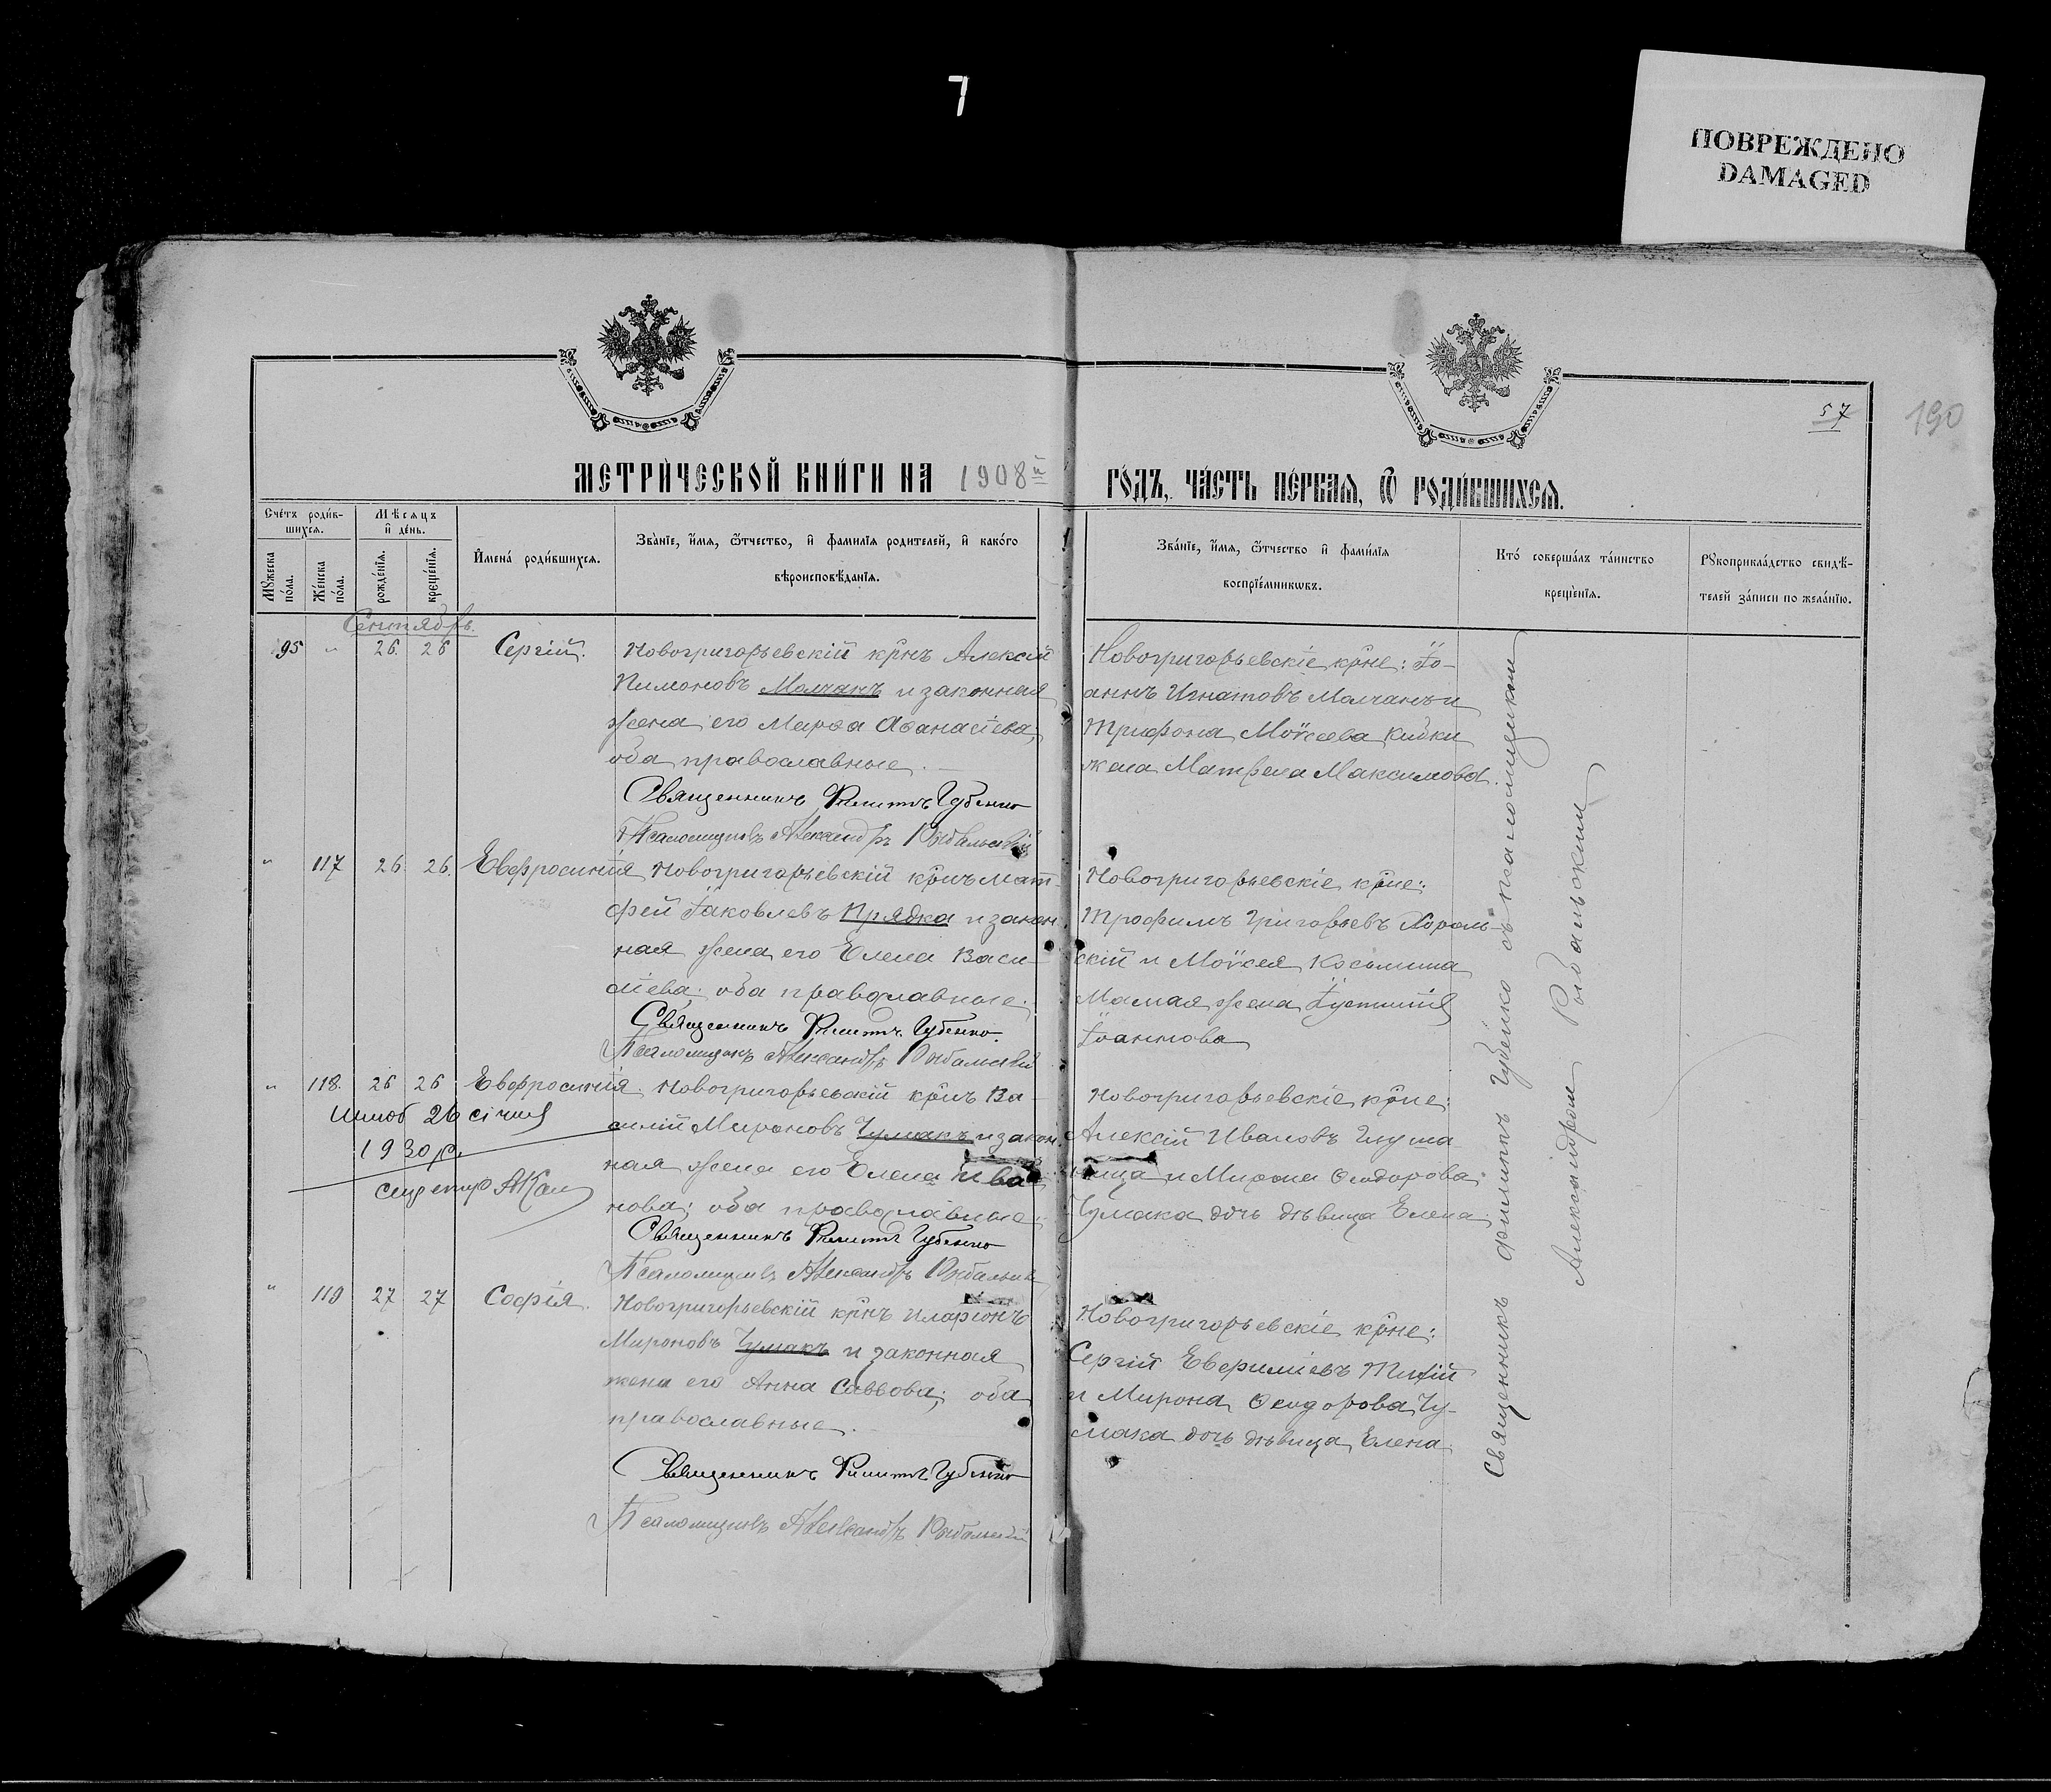 7
ПОВРЕЖДЕНО
DAMAGED
57
190
МЕТРИ́ЧЕСКОЙ КНИ́ГИ НА 1908й
ГО́ДЪ, ЧА́СТЬ ПЕ́РВАЯ, Ѿ РОДИ́ВШИХСЯ.
Сче́тъ роди́в-
шихся.
Мѣ́сяцъ
и҆ де́нь.
Мꙋ́жеска
по́ла.
Же́нска
по́ла.
рожде́нїѧ.
креще́нїѧ.
И҆мена̀ роди́вшихся.
Зва́нїе, и҆́мя, ѻ҆́тчество, и҆ фами́лїя роди́телей, и҆ како́го
вѣроисповѣ́данїѧ.
Зва́нїе, и҆́мя, ѻ҆́тчество и҆ фами́лїя
воспрїе́мникѡвъ.
Кто́ соверша́лъ та́инство
креще́нїѧ.
Рꙋкоприкла́дство свидѣ́-
телей за́писи по жела́нїю.
Сентябрь.
95 " 26. 26 Сергій.
Новогригорьевскій кр͠нъ Алексій
Пимоновъ Молчанъ и законная
жена его Марѳа Аѳанасіева;
оба православные.
Священникъ Филиппъ Губенко
Псаломщикъ Александръ Рыбальскій
Новогригорьевскіе кр͠не: Іо-
аннъ Игнатовъ Молчанъ и
Трифона Моѵсеева Кибки
жена Матрена Максимова.
" 117 26. 26. Евфросинія
Новогригорьевскій кр͠нъ Мат-
фей Іаковлевъ Прядка и закон
ная жена его Елена Васи-
ліева; оба православные.
Священникъ Филиппъ Губенко.
Псаломщикъ Александръ Рыбальскій
Новогригорьевскіе кр͠не:
Трофимъ Григорьевъ Хороль-
скій и Моѵсея Косьмина
Мамая жена Іустинія
Іоаннова
" 118. 26 26 Евфросинія.
Шлюб 26 січня
1930 р.
Новогригорьевскій кр͠нъ Ва-
силій Мироновъ Чумакъ и закон.
ная жена его Елена Ива
нова; оба православные.
Священникъ Филиппъ Губенко
Псаломщикъ Александръ Рыбальскій
Новогригорьевскіе кр͠не:
Алексій Ивановъ
и Мирона Ѳеодорова
Чумака дочь дѣвица Елена.
" 119 27 27 Софія.
Новогригорьевскій кр͠нъ Иларіонъ
Мироновъ Чумакъ и законная
жена его Анна Саввова; оба
православные.
Священникъ Филиппъ Губенко
Псаломщикъ Александръ Рыбальскій
Новогригорьевскіе кр͠не:
Сергій Евфиміевъ Тихій
и Мирона Ѳеодорова Чу-
мака дочь дѣвица Елена.
Священникъ Филиппъ Губенко съ псаломщикомъ
Александромъ Рыбальскимъ